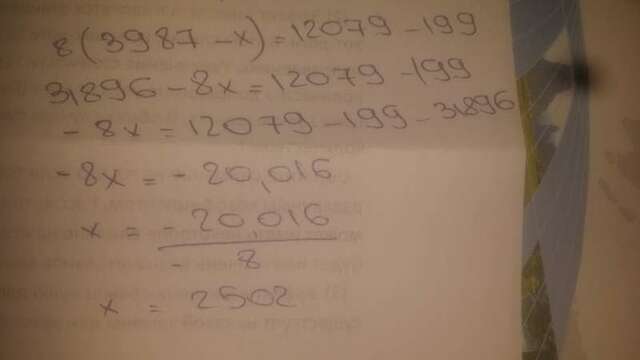 8(3987-x)=12079-199
31896-8x=12079-199
-8x=12079-199-31896
-8x=-20,016
x = -20,016
- 8
x = 2502